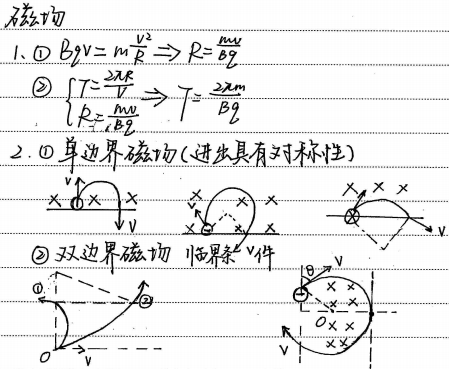 磁场
1. ① Bqv = m v²/R ⇒ R = mv/Bq
② { T = 2πR/v
R = mv/Bq ⇒ T = 2πm/Bq
2. ① 单边界磁场(进出具有对称性)
v × × × v
× × × v ×
× × × v
② 双边界磁场 临界条件
① ② O v
θ v × × × × O × × × × v